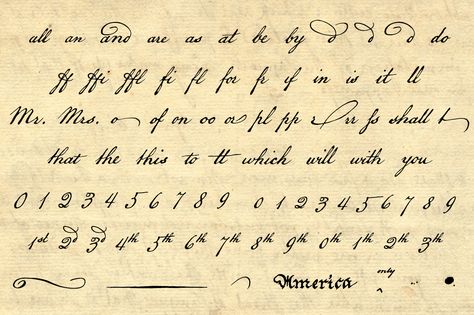 all an and are as at be by d d d do
ff ffi ffl fi fl for fr if in is it ll
Mr. Mrs. o of on oo or pl pp r rr ss shall t
that the this to tt which will with you
0 1 2 3 4 5 6 7 8 9 0 1 2 3 4 5 6 7 8 9
1st 2d 3d 4th 5th 6th 7th 8th 9th 0th 1th 2th 3th
America only ‸ .